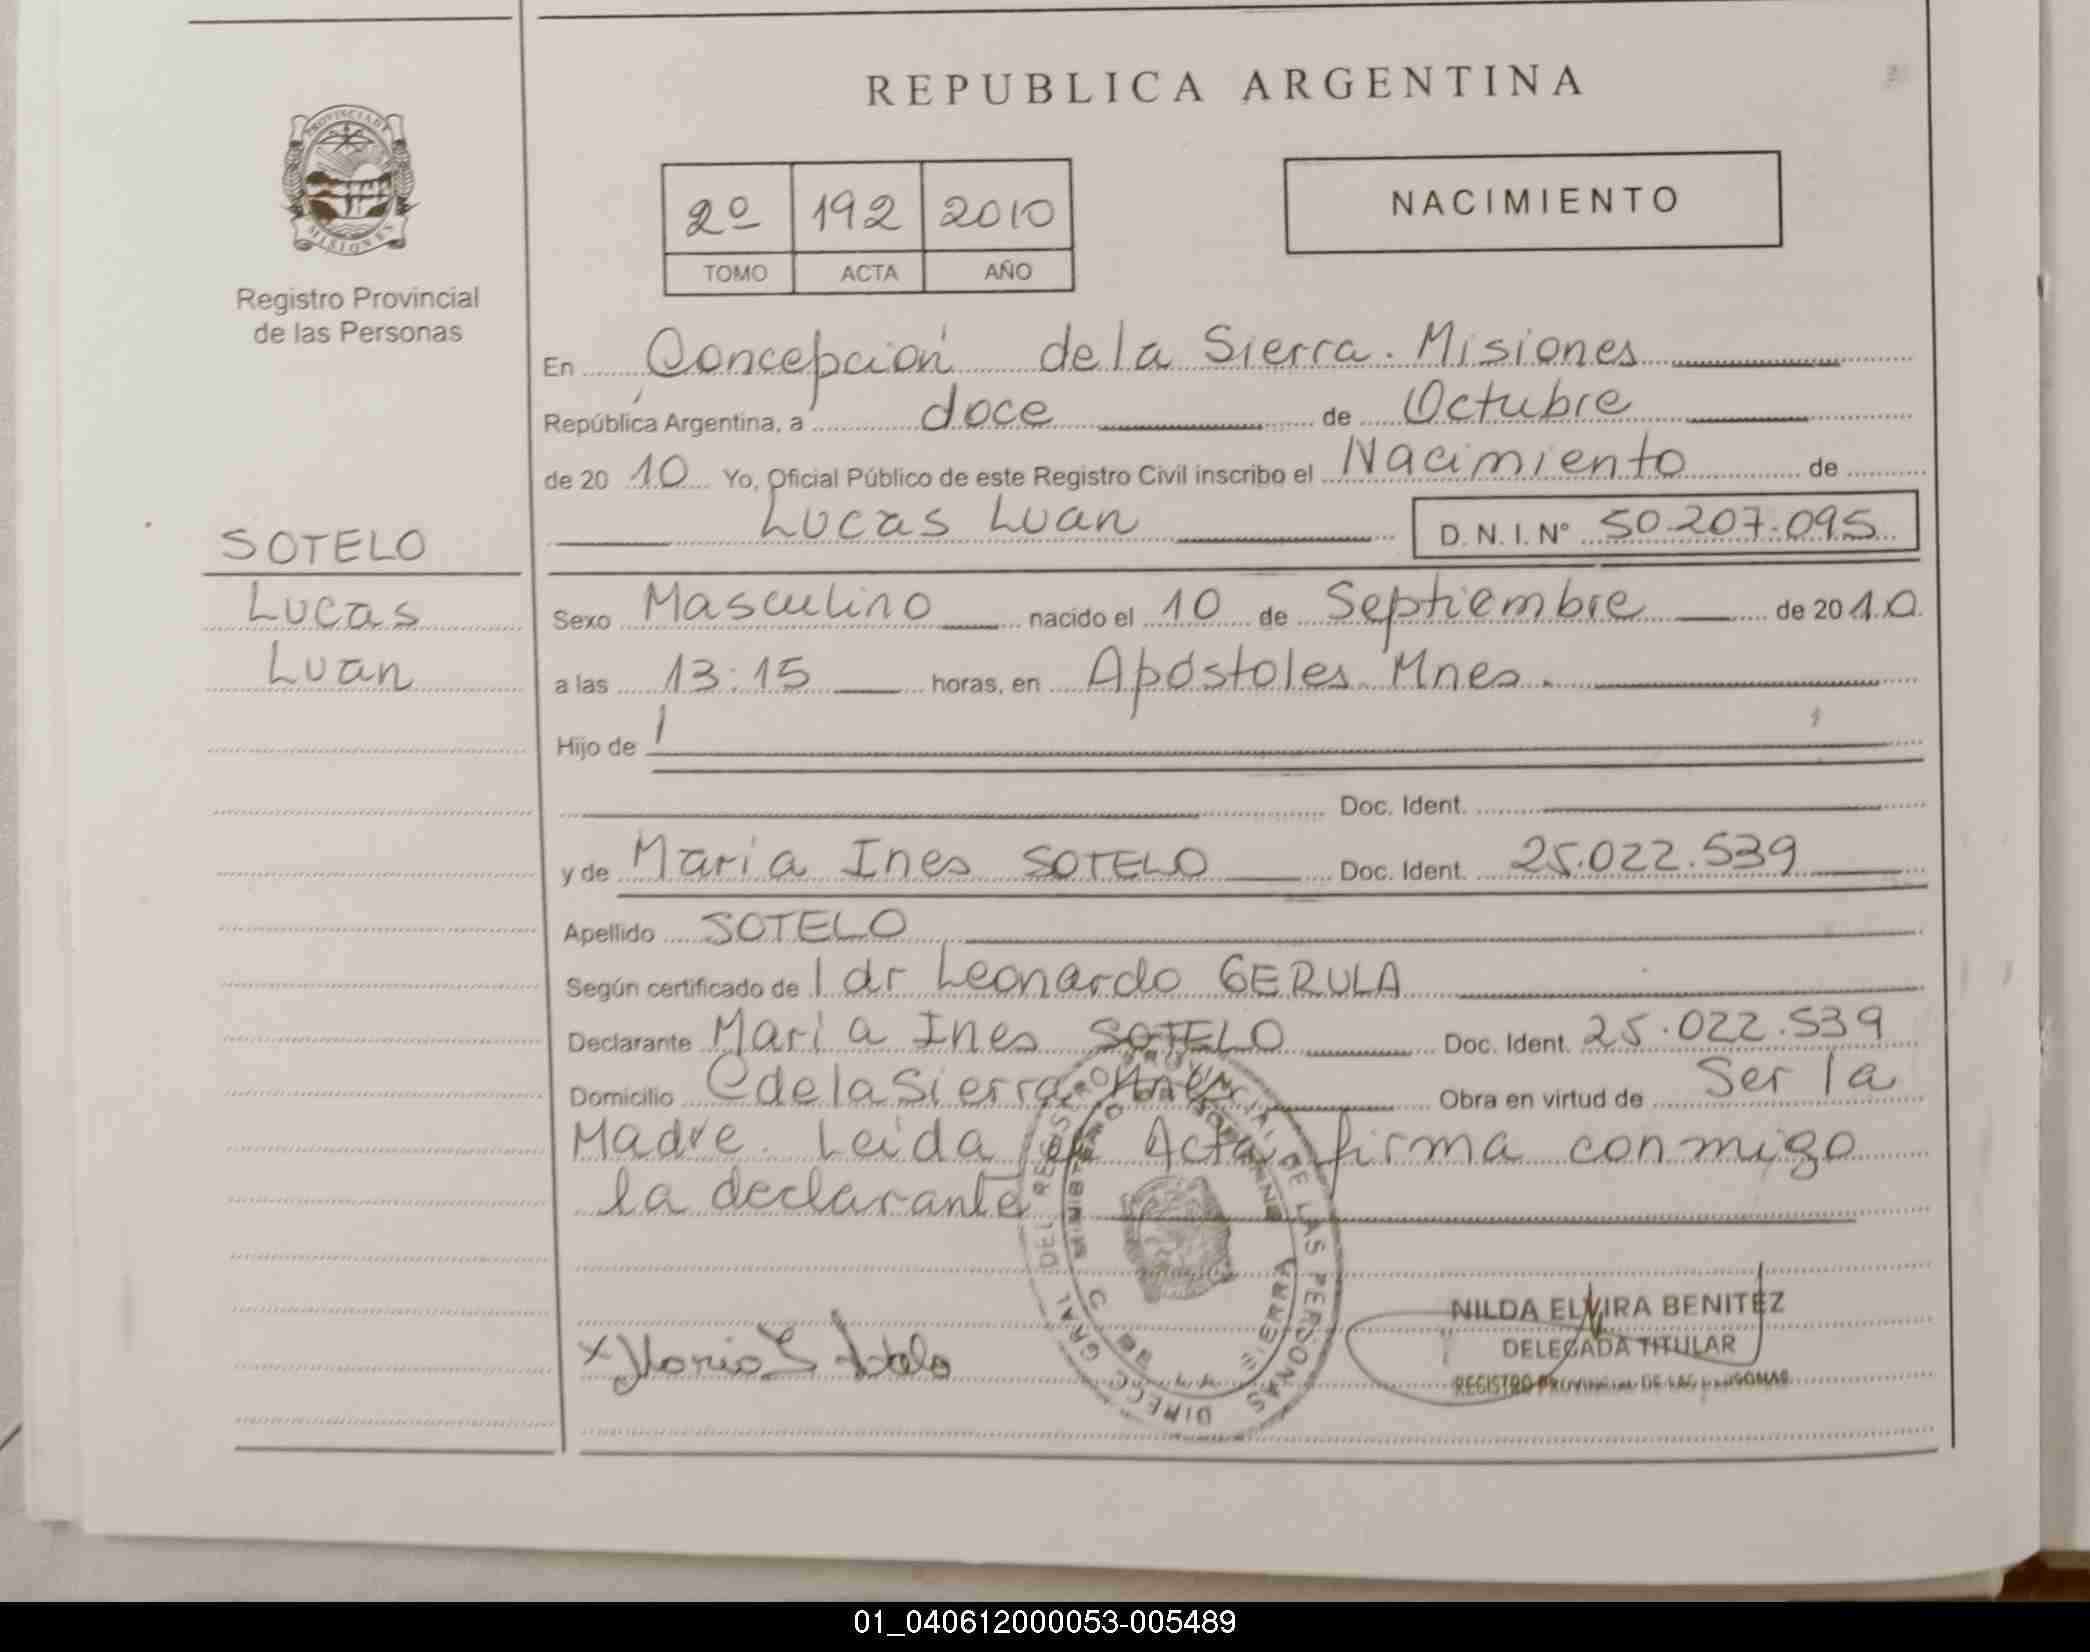 REPUBLICA ARGENTINA
PROVINCIA DE
MISIONES
Registro Provincial
de las Personas
2º 192 2010
TOMO ACTA AÑO
NACIMIENTO
En Concepción de la Sierra. Misiones
República Argentina, a doce de Octubre
de 20 10 Yo, Oficial Público de este Registro Civil inscribo el Nacimiento de
Lucas Luan D.N.I.Nº 50.207.095
SOTELO
Lucas
Luan
Sexo Masculino nacido el 10 de Septiembre de 2010
a las 13:15 horas, en Apóstoles Mnes.
Hijo de
Doc. Ident.
y de Maria Ines SOTELO Doc. Ident. 25.022.539
Apellido SOTELO
Según certificado de l dr Leonardo GERULA
Declarante Maria Ines SOTELO Doc. Ident. 25.022.539
Domicilio C de la Sierra Mnes Obra en virtud de Ser la
Madre. Leida el Acta firma conmigo
la declarante
DIRECC. GRAL. DEL REGISTRO PROVINCIAL DE LAS PERSONAS
MINISTERIO DE GOBIERNO
SIERRA
x Maria I Sotelo
NILDA ELVIRA BENITEZ
DELEGADA TITULAR
REGISTRO PROVINCIAL DE LAS PERSONAS
01_040612000053-005489